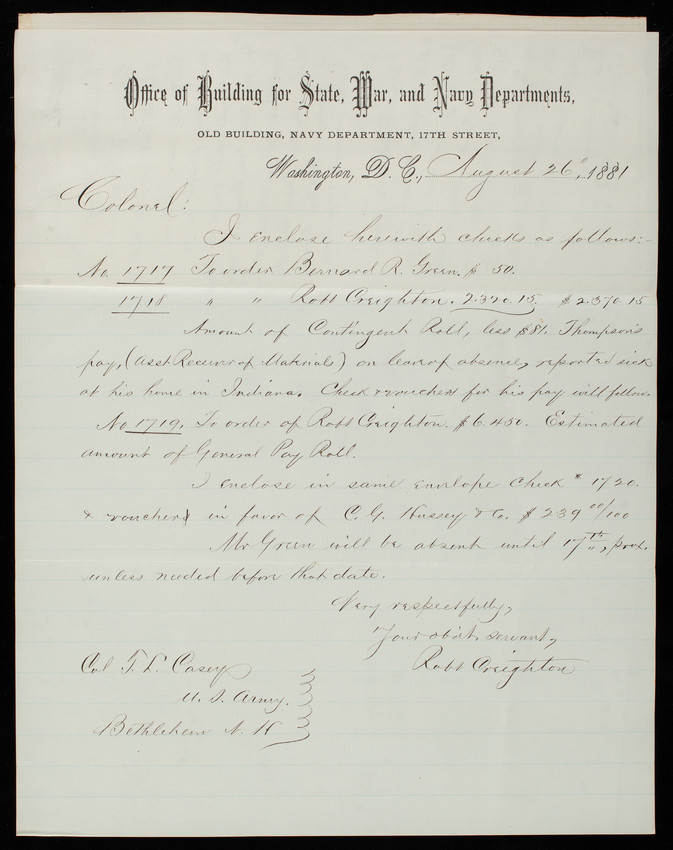 Office of Building for State, War, and Navy Departments,
OLD BUILDING, NAVY DEPARTMENT, 17TH STREET,
Washington, D. C., August 26", 1881
Colonel:
I enclose herewith checks as follows:-
No. 1717 To order Bernard R. Green. $ 50.
1718 " " Robt Creighton. 2.320.15. $2.370 15
Amount of Contingent Roll, less $81. Thompson's
pay, (Asst Receiver of Materials) on leave of absence, reported sick
at his home in Indiana. Check & vouchers for his pay will follow.
No 1719. To order of Robt Creighton. $6.450. Estimated
amount of General Pay Roll.
I enclose in same envelope check # 1720.
& vouchers in favor of C. G. Hussey & Co. $239 00/100
Mr Green will be absent until 17th", prox.
unless needed before that date.
Very respectfully,
Your obdt. servant,
Robt Creighton
Col T. L. Casey
U. S. Army.
Bethlehem N. H